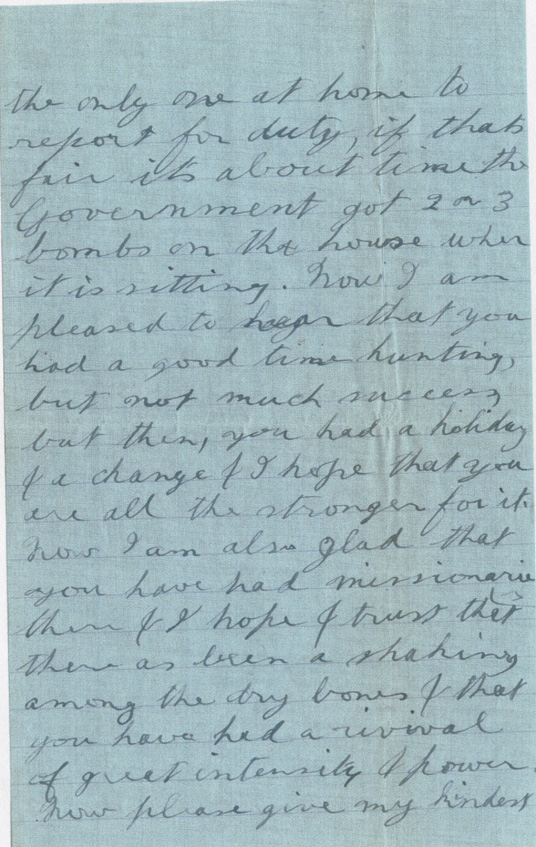 the only one at home to
report for duty, if thats
fair its about time the
Government got 2 or 3
bombs on the house wher
it is sitting. Now I am
pleased to hear that you
had a good time hunting,
but not much success,
but then, you had a holiday
& a change & I hope that you
are all the stronger for it.
Now I am also glad that
you have had missionarie
there & I hope & trust that
there as been a shaking
among the dry bones & that
you have had a rivival
of great intensity & power.
Now please give my kindest